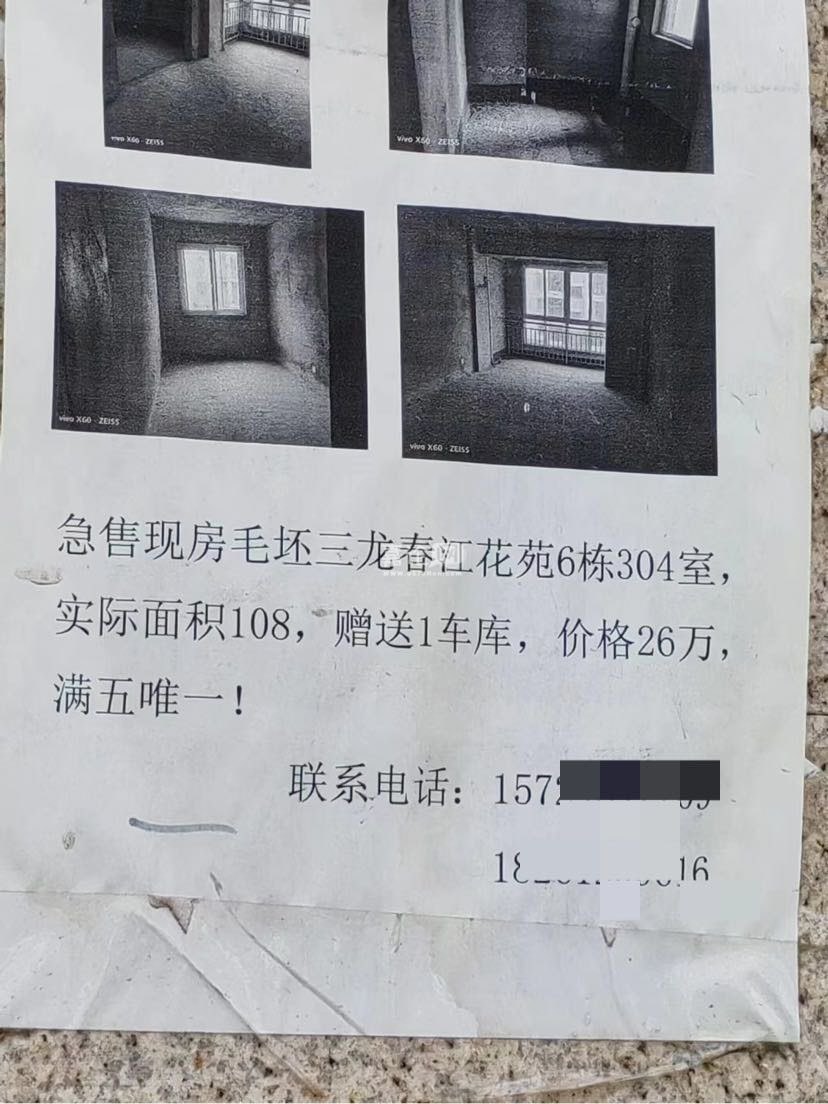 vivo X60 · ZEISS
vivo X60 · ZEISS
vivo X60 · ZEISS
vivo X60 · ZEISS
急售现房毛坯三龙春江花苑6栋304室，
实际面积108，赠送1车库，价格26万，
满五唯一！
联系电话：157